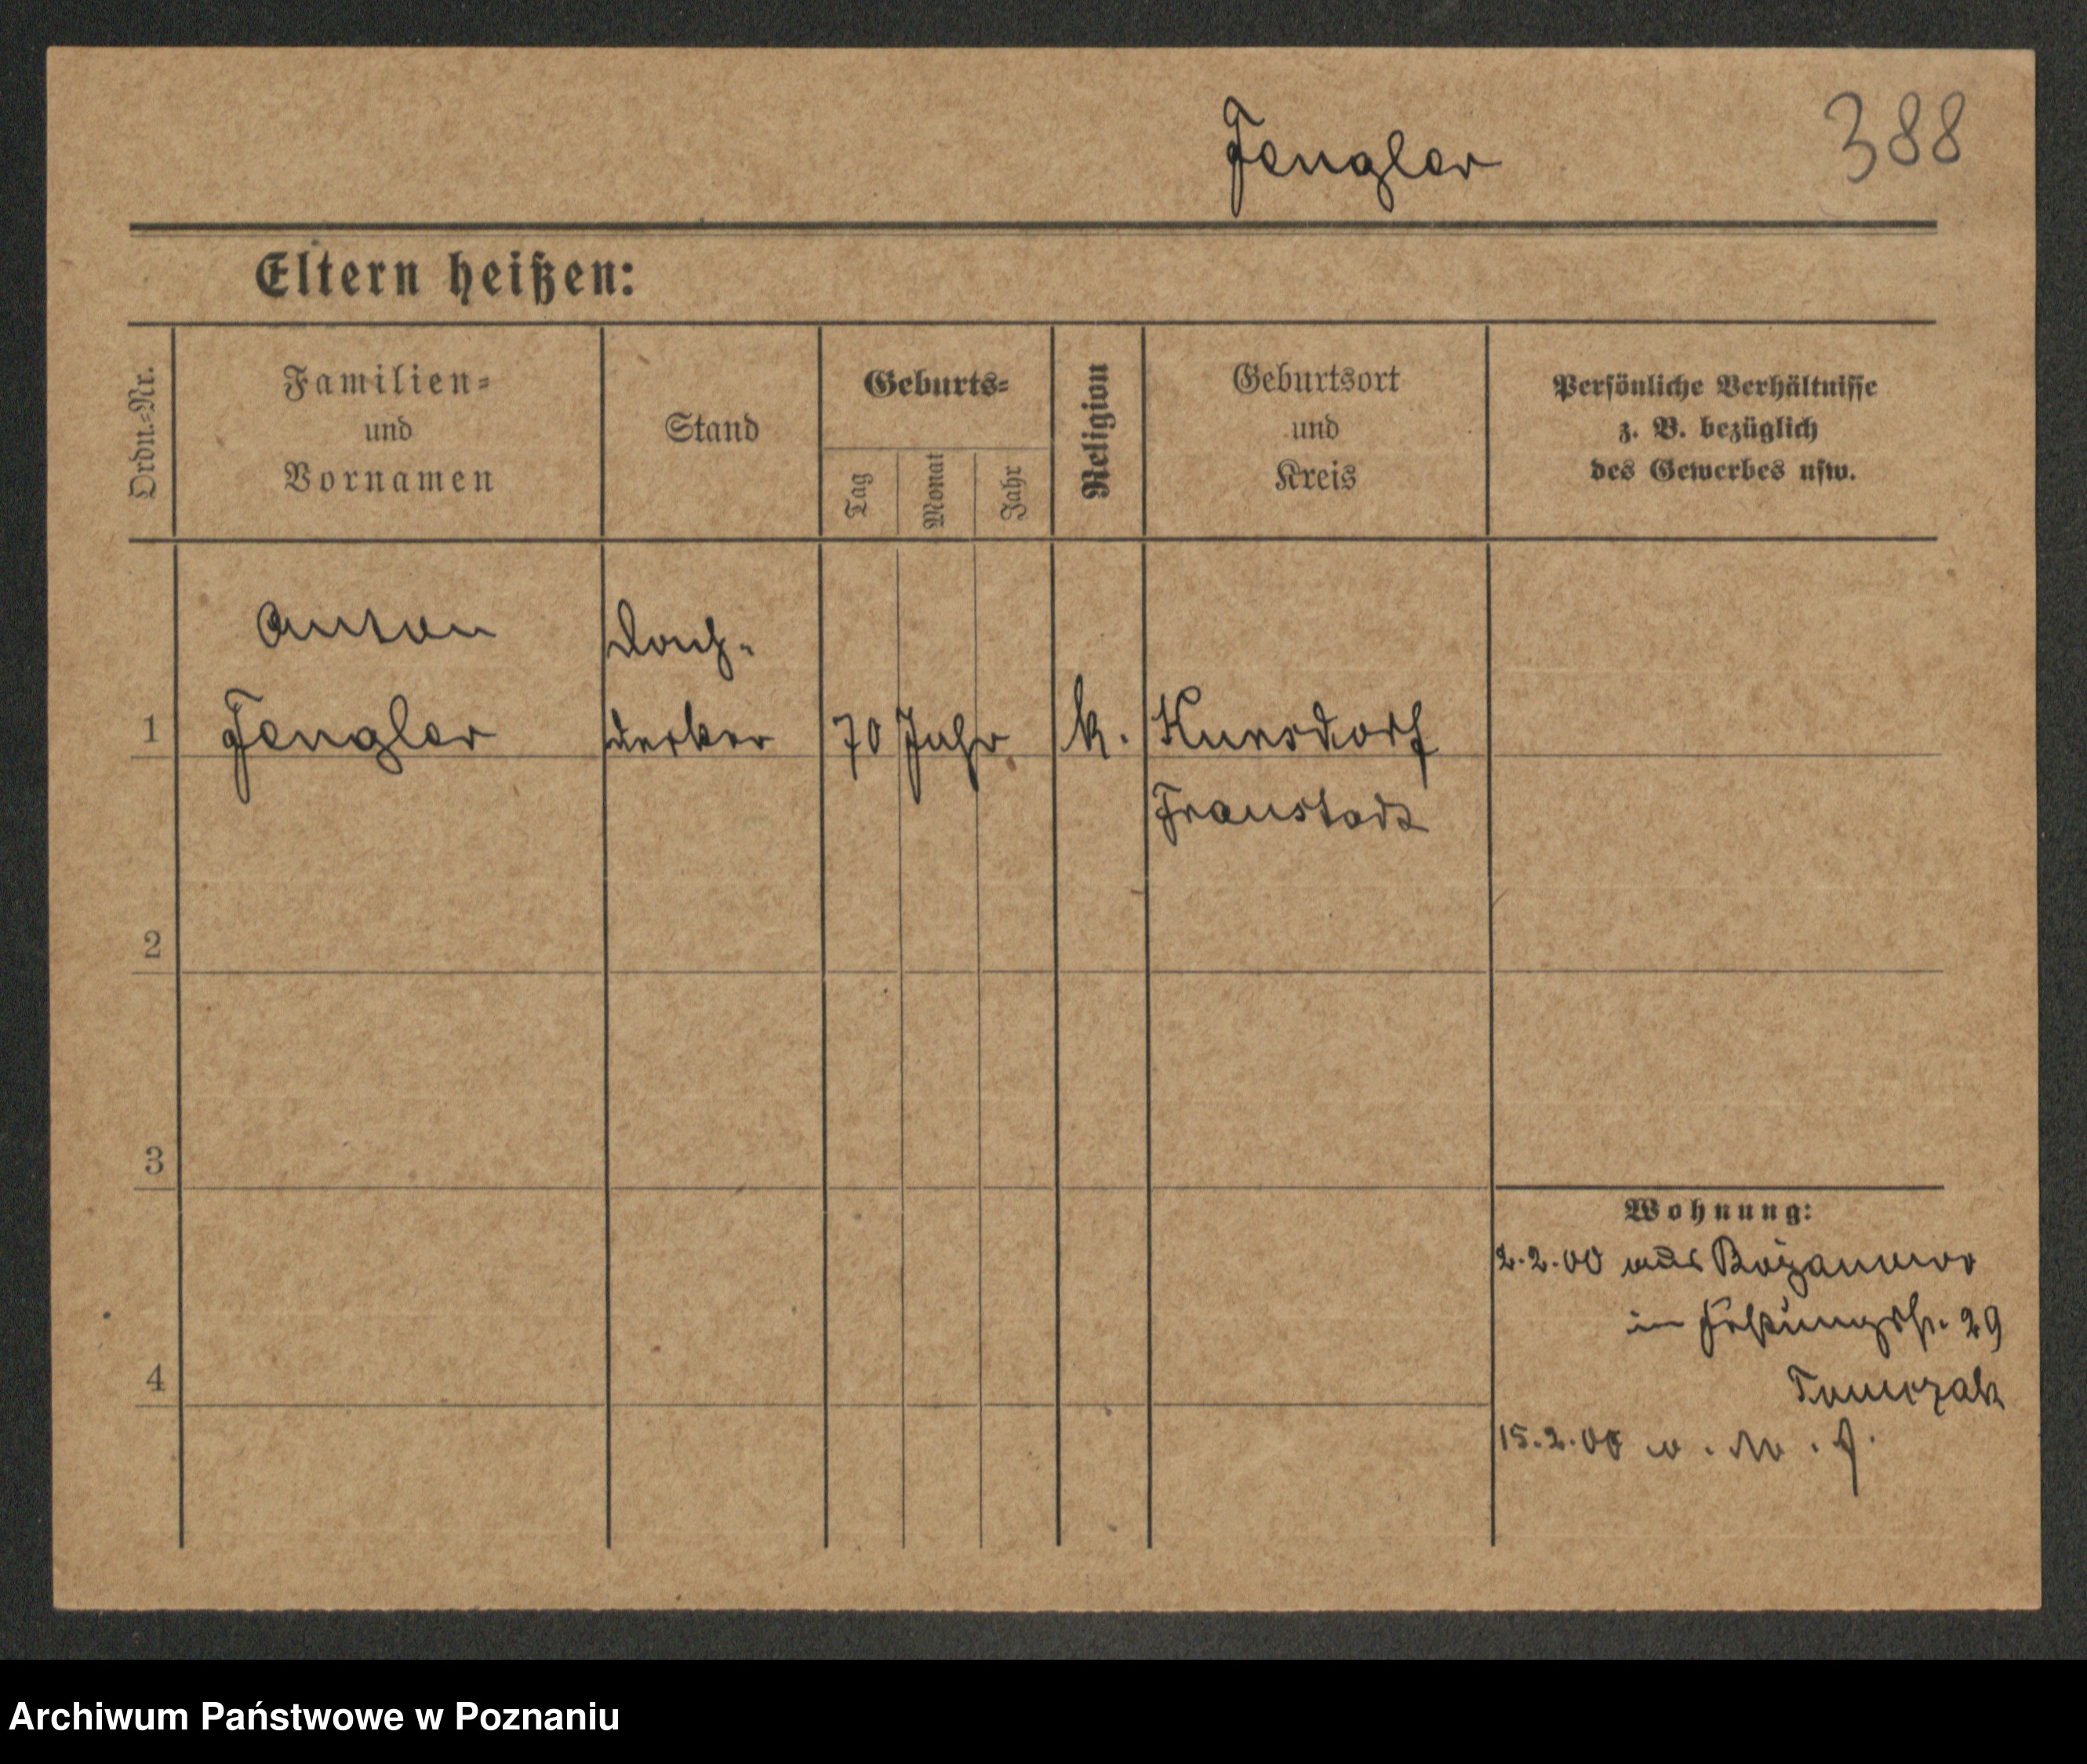 Fengler
388
Eltern heißen:
Ordn.-Nr.
Familien-
und
Vornamen
Stand
Geburts-
Tag
Monat
Jahr
Religion
Geburtsort
und
Kreis
Persönliche Verhältnisse
z. B. bezüglich
des Gewerbes usw.
Anton
Dach-
1
Fengler
decker
70 Jahr
k.
Kursdorf
Fraustadt
2
3
Wohnung:
2.2.00 aus
in 29
4
Tomczak
15.2.00
Archiwum Państwowe w Poznaniu